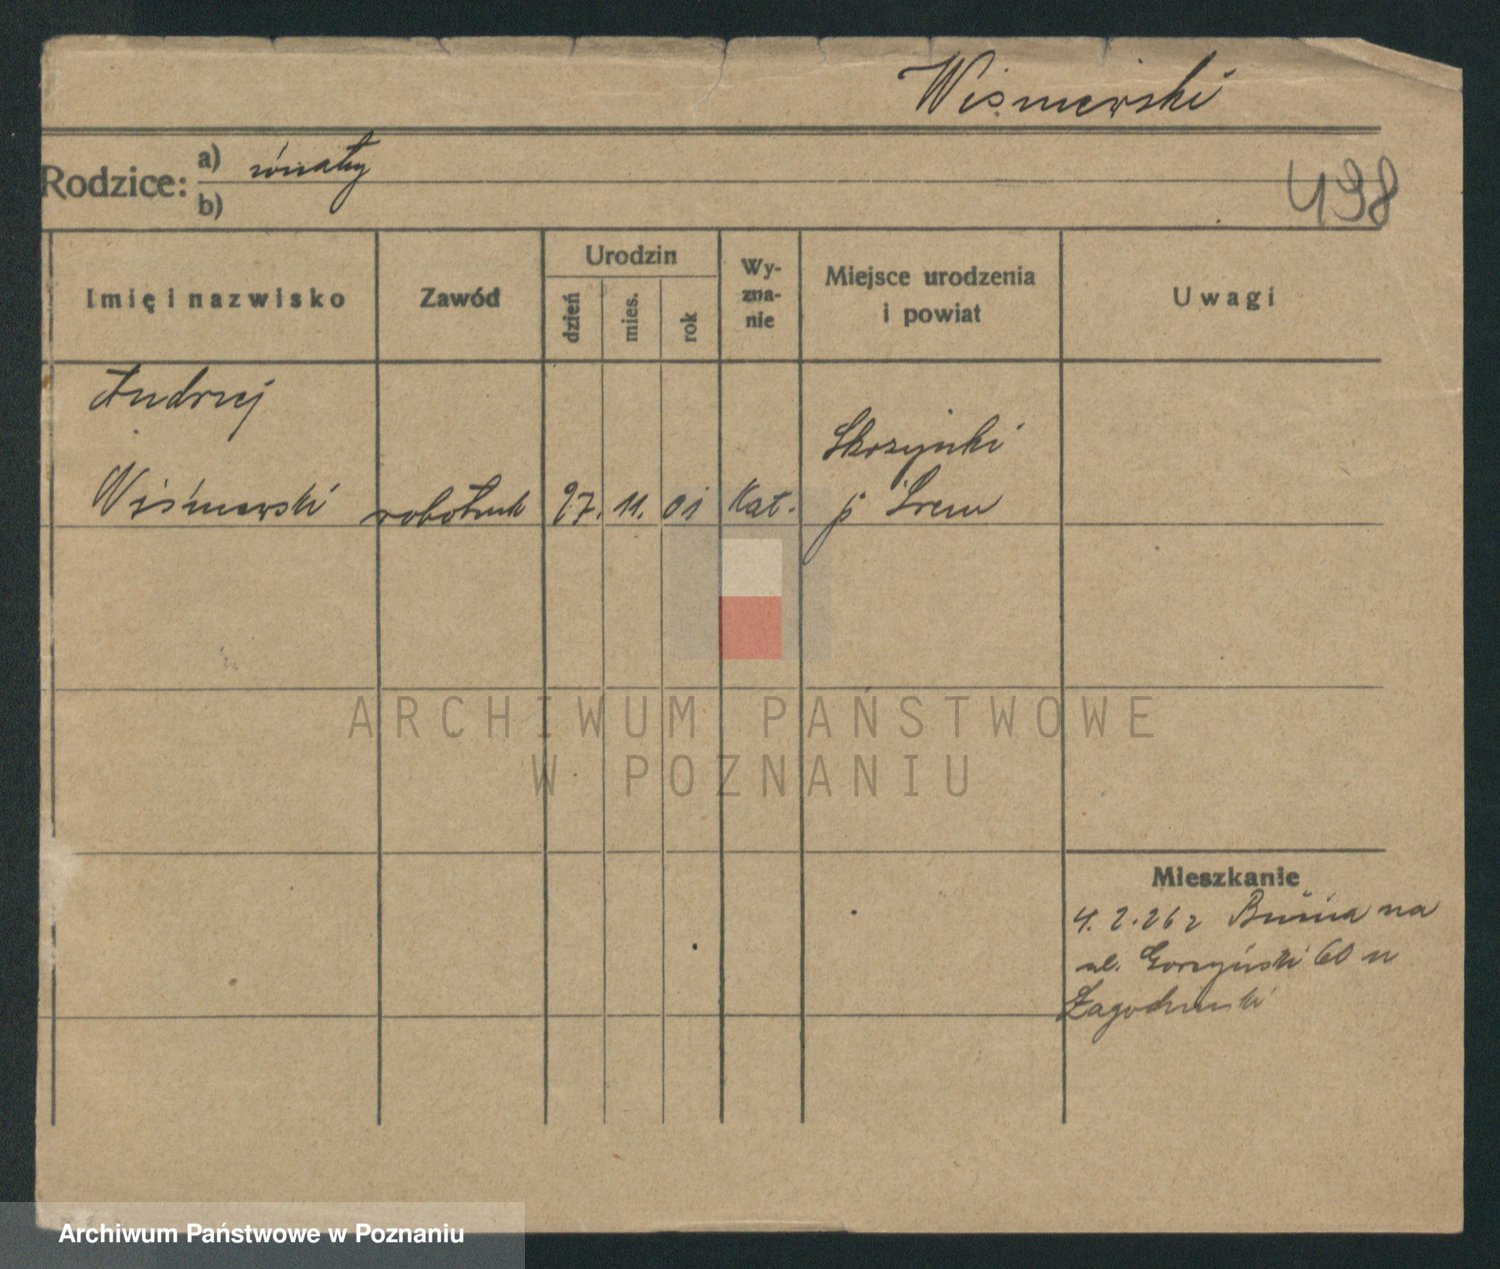 Wiśniewski
Rodzice: a) żonaty
b)
498
Imię i nazwisko
Zawód
Urodzin
dzień
mies.
rok
Wy-
zna-
nie
Miejsce urodzenia
i powiat
Uwagi
Andrzej
Wiśniewski robotnik 27. 11. 01 Kat.
Skrzynki
p. Śrem
ARCHIWUM PAŃSTWOWE
W POZNANIU
Mieszkanie
4. 2. 26 z Bnina na
ul. Gorzyński 60 u
Archiwum Państwowe w Poznaniu